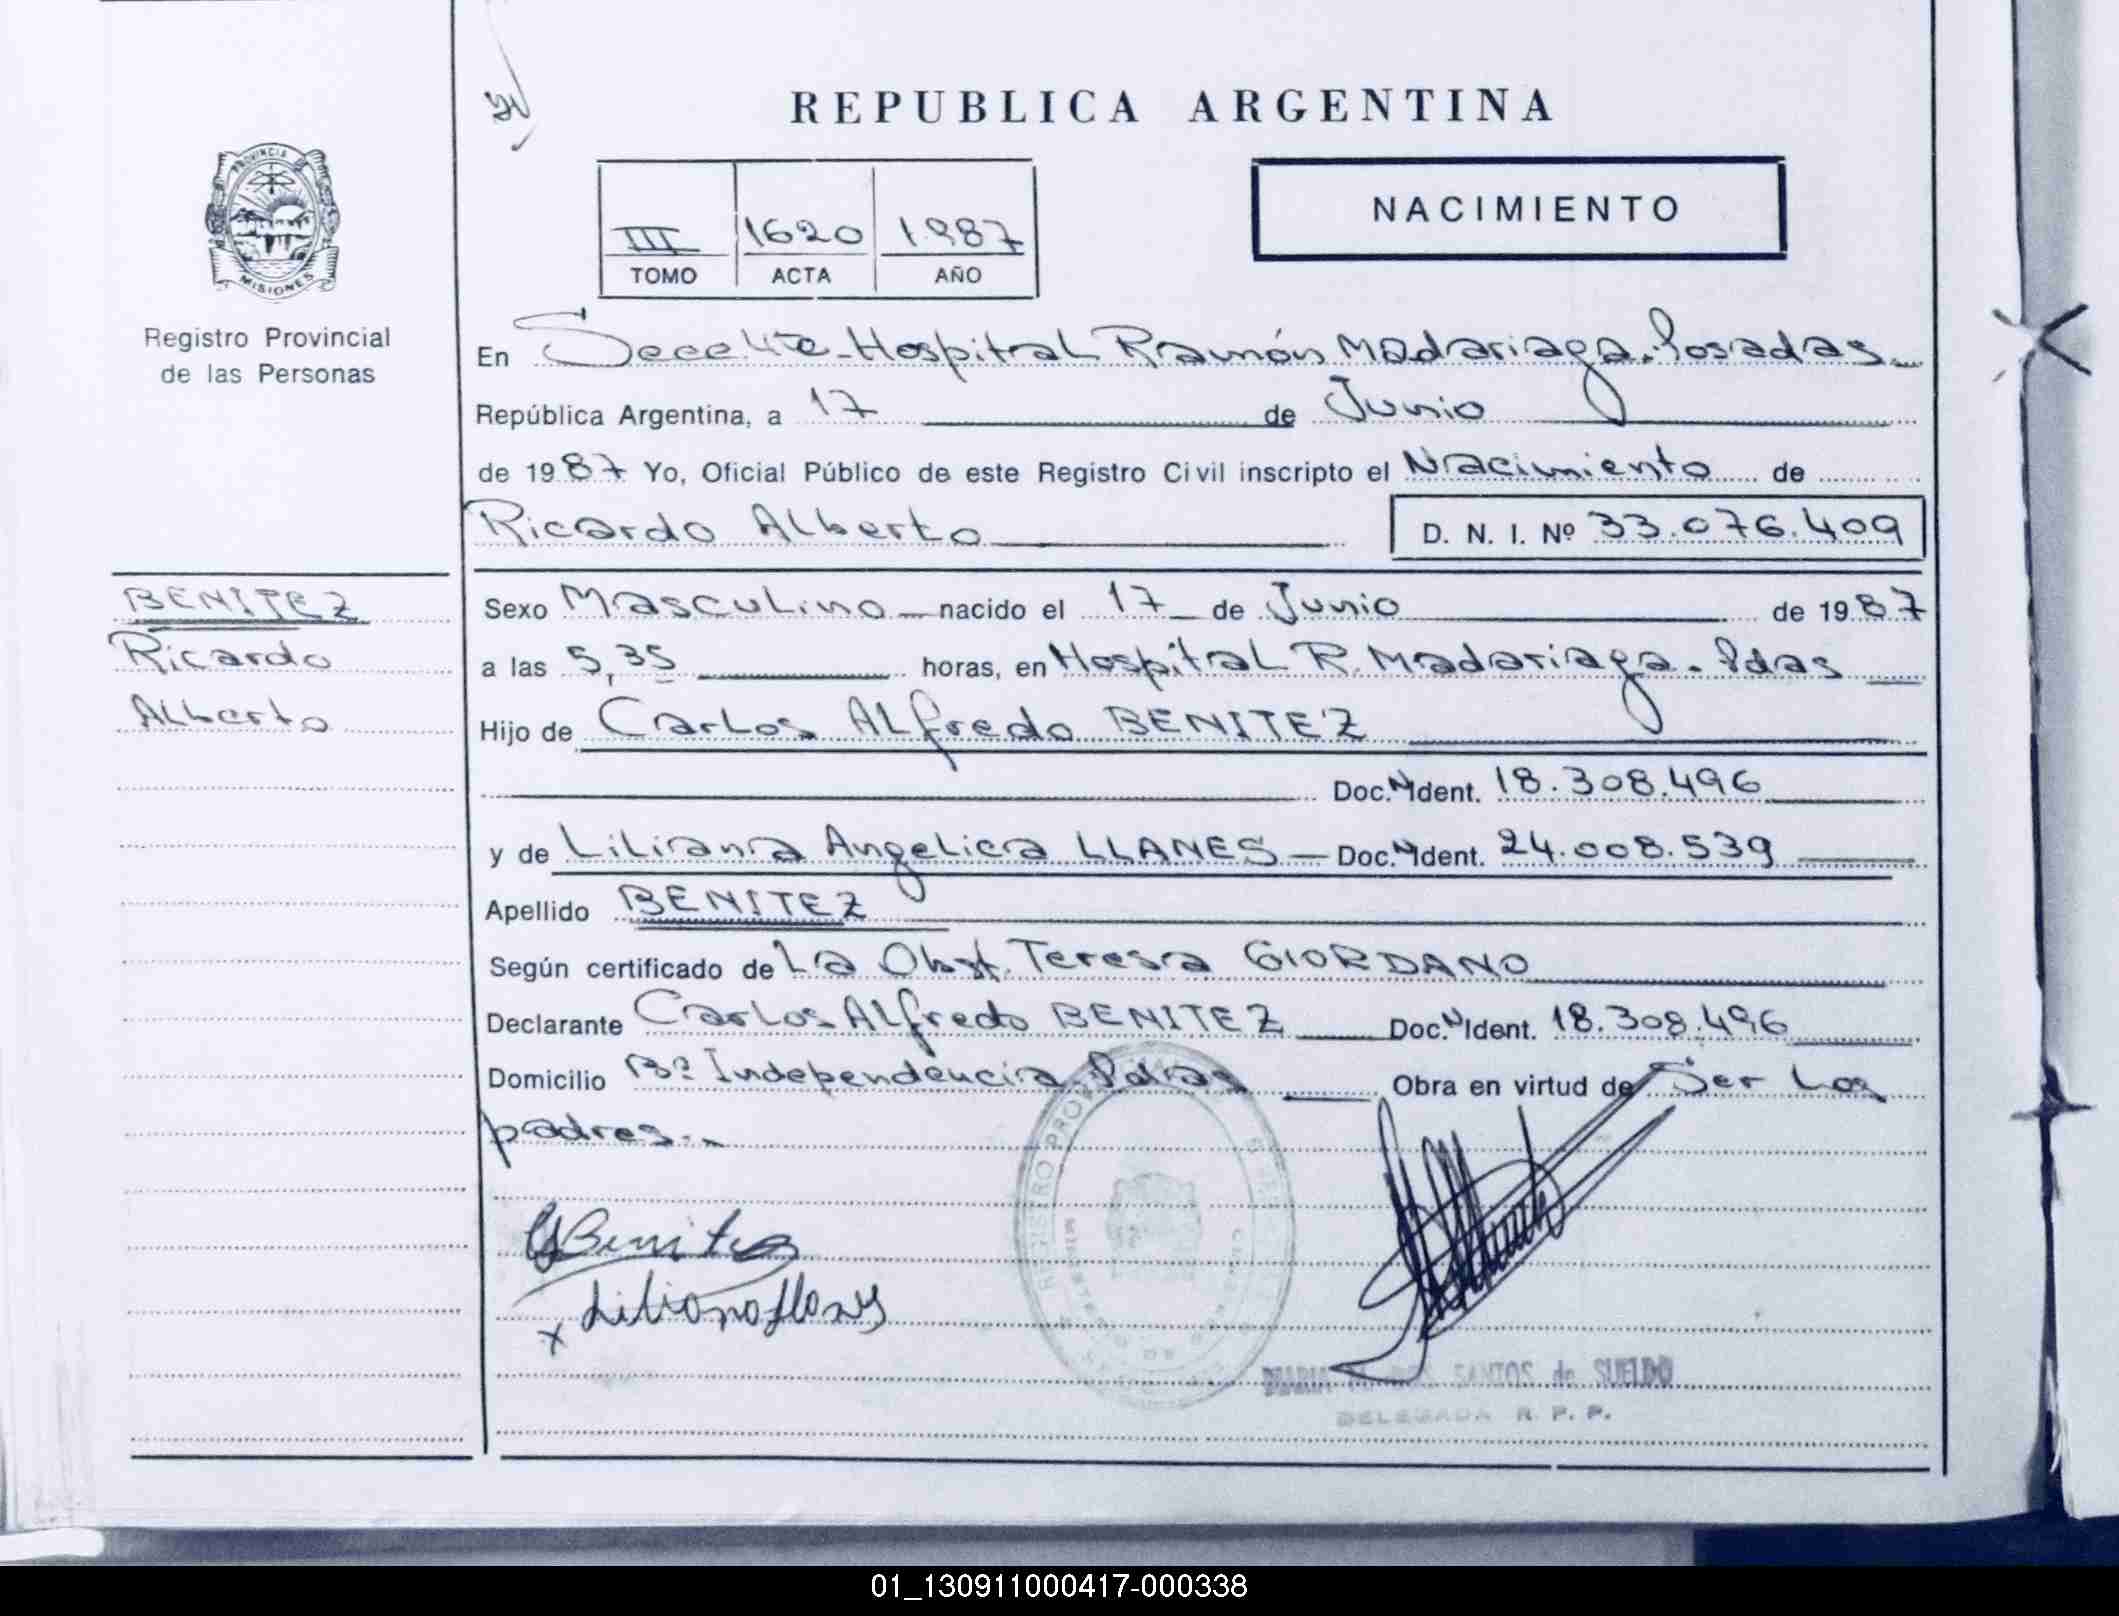 REPUBLICA ARGENTINA
III 1620 1987
TOMO ACTA AÑO
NACIMIENTO
PROVINCIA DE
MISIONES
Registro Provincial
de las Personas
En Hospital Ramón Madariaga. Posadas
República Argentina, a 17 de Junio
de 1987 Yo, Oficial Público de este Registro Civil inscripto el Nacimiento de
Ricardo Alberto D. N. I. Nº 33.076.409
BENITEZ
Ricardo
Alberto
Sexo Masculino nacido el 17 de Junio de 1987
a las 5,35 horas, en Hospital R. Madariaga. Pdas
Hijo de Carlos Alfredo BENITEZ
Doc. N Ident. 18.308.496
y de Liliana Angelica LLANES - Doc. N Ident. 24.008.539
Apellido BENITEZ
Según certificado de La Obst. Teresa GIORDANO
Declarante Carlos Alfredo BENITEZ Doc. N Ident. 18.308.496
Domicilio Bº Independencia. Pdas Obra en virtud de Ser Los
padres.-
Benitez
x Liliana Llanes
REGISTRO
SANTOS de SUELDO
DELEGADA R. P. P.
01_130911000417-000338